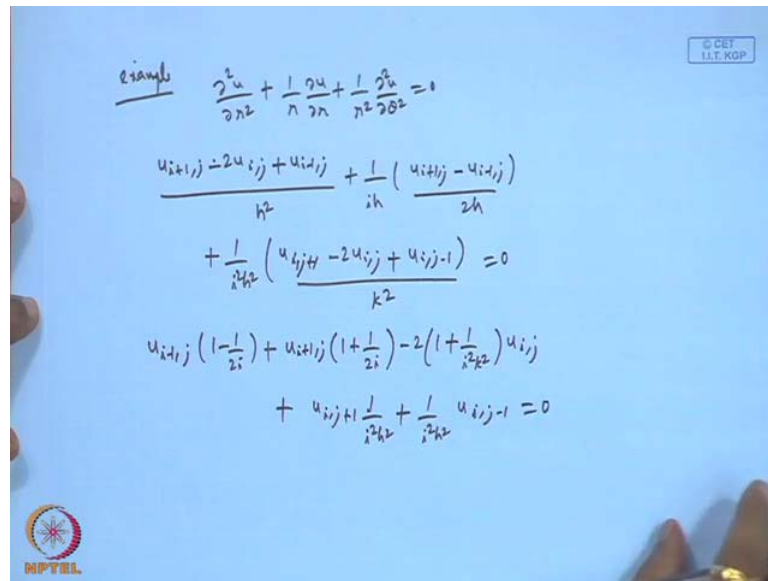 © CET
I.I.T. KGP
example ∂²u/∂r² + 1/r ∂u/∂r + 1/r² ∂²u/∂θ² = 0
(u_{i+1,j} - 2u_{i,j} + u_{i-1,j})/h² + 1/(ih) ((u_{i+1,j} - u_{i-1,j})/2h)
+ 1/(i²h²) ((u_{i,j+1} - 2u_{i,j} + u_{i,j-1})/k²) = 0
u_{i-1,j} (1 - 1/2i) + u_{i+1,j} (1 + 1/2i) - 2(1 + 1/(i²k²)) u_{i,j}
+ u_{i,j+1} 1/(i²k²) + 1/(i²k²) u_{i,j-1} = 0
NPTEL